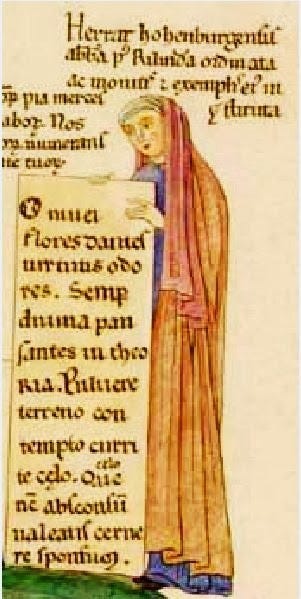 Herrat hohenburgensis
abba p' Rilinda ordinata
ac monitis & exempl' ei' in
stituta
pia merces
labor. Nos
numerans
O niuei
flores dantes
uirtutis odo
res. Semp
diuina pau
santes in theo
ria. Puluere
terreno con
tempto curri
te celo. Que
nc absconsu
ualeatis cerne
re sponsum.